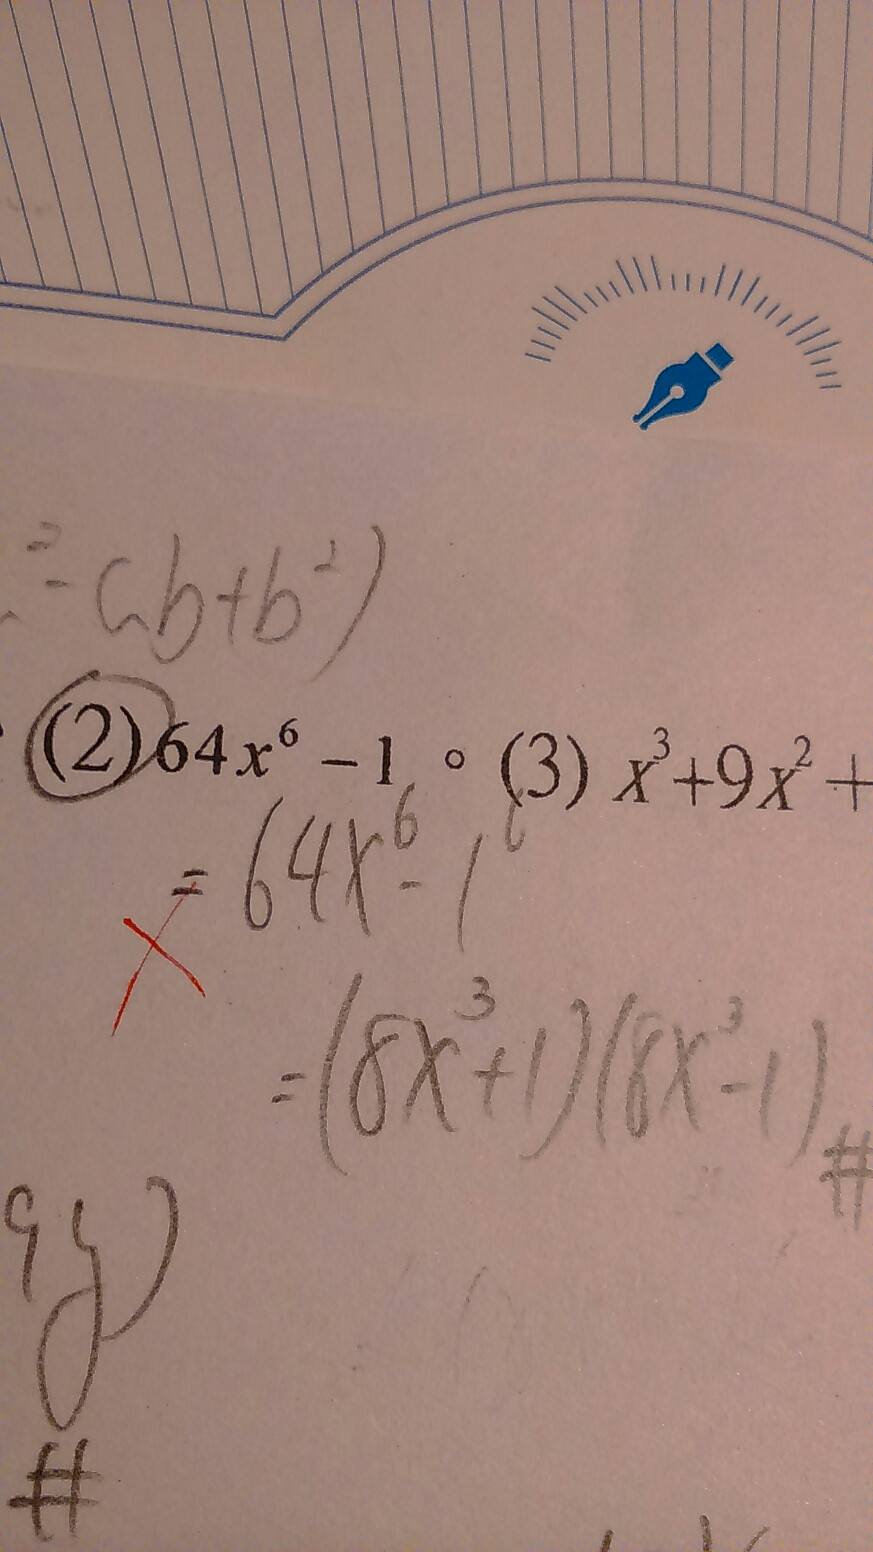 ²-ab+b²)
(2)64x⁶-1。(3) x³+9x²+
=64x⁶-1⁶
=(8x³+1)(8x³-1)#
9y)
#